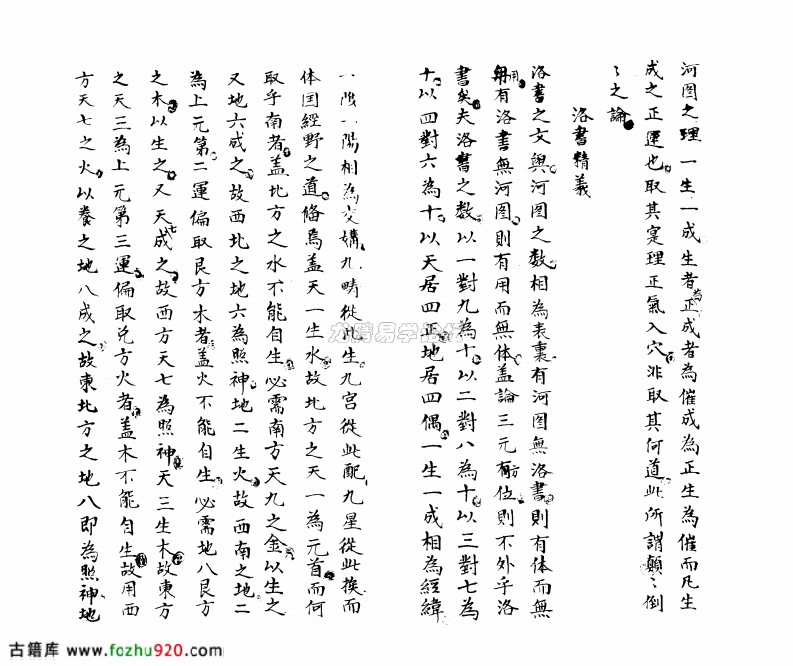 河图之理一生一成生者為正成者為催成為正生為催而凡生
成之正運也取其寔理正氣入穴非取其何道此所謂顛〻倒
〻之論
洛書精義
洛書之文與河图之数相為表裏有河图無洛書則有体而無
用有洛書無河图則有用而無体盖論三元方位則不外乎洛
書矣夫洛書之数以一對九為十以二對八為十以三對七為
十以四對六為十以天居四正地居四偶一生一成相為經緯
一陰一陽相為交媾九疇從此生九宫從此配九星從此换而
体囯經野之道俻焉盖天一生水故北方之天一為元首而何
取乎南者盖北方之水不能自生必需南方天九之金以生之
又地六成之故西北之地六為照神地二生火故西南之地二
為上元第二運偏取艮方木者盖火不能自生必需地八艮方
之木以生之又天七成之故西方天七為照神天三生木故東方
之天三為上元第三運偏取兑方火者盖木不能自生故用西
方天七之火以養之地八成之故東北方之地八即為照神地
古籍库 www.fozhu920.com